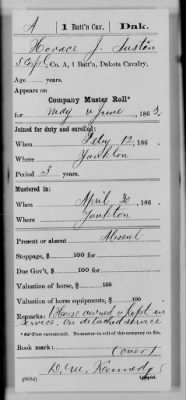 A | 1 Batt'n Cav. | Dak.
Horace J. Austin
5 Corpl, Co. A, 1 Batt'n, Dakota Cavalry.
Age years.
Appears on
Company Muster Roll*
for May & June, 1863.
Joined for duty and enrolled:
When Feby 12, 186
Where Yankton
Period 3 years.
Mustered in:
When April 30, 186
Where Yankton
Present or absent Absent
Stoppage, $ 100 for
Due Gov't, $ 100 for
Valuation of horse, $ 100
Valuation of horse equipments, $ 100
Remarks: Horse owned & kept in
service. On detached service
Book mark:
D. M. Kennedy